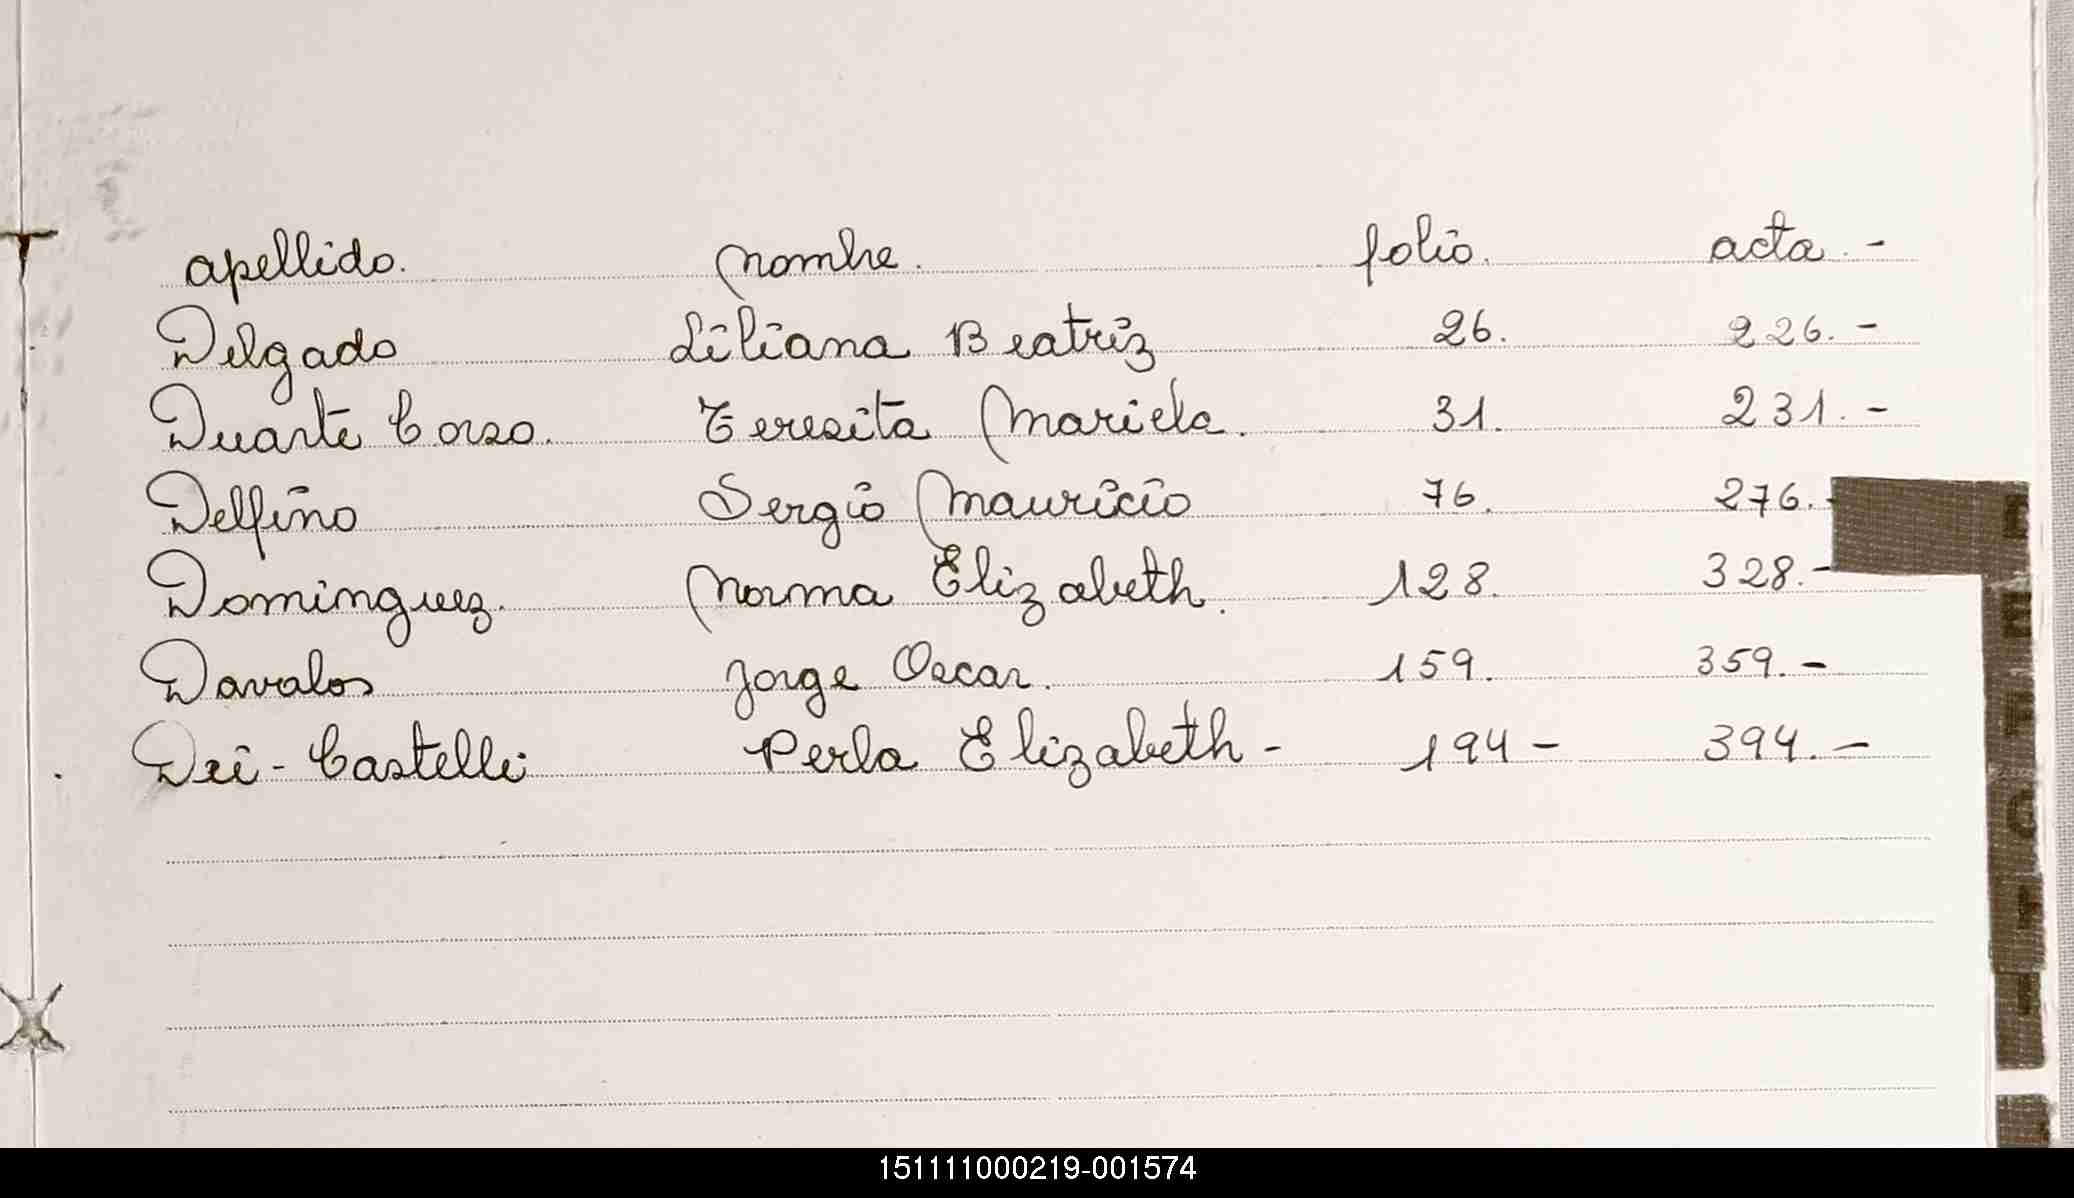 apellido. nombre. folio. acta.-
Delgado Liliana Beatriz 26. 226.-
Duarte Corso. Teresita Mariela. 31. 231.-
Delfino Sergio Mauricio 76. 276.-
Dominguez. Norma Elizabeth. 128. 328.-
Davalos Jorge Oscar. 159. 359.-
Dei-Castelli Perla Elizabeth- 194- 394.-
151111000219-001574